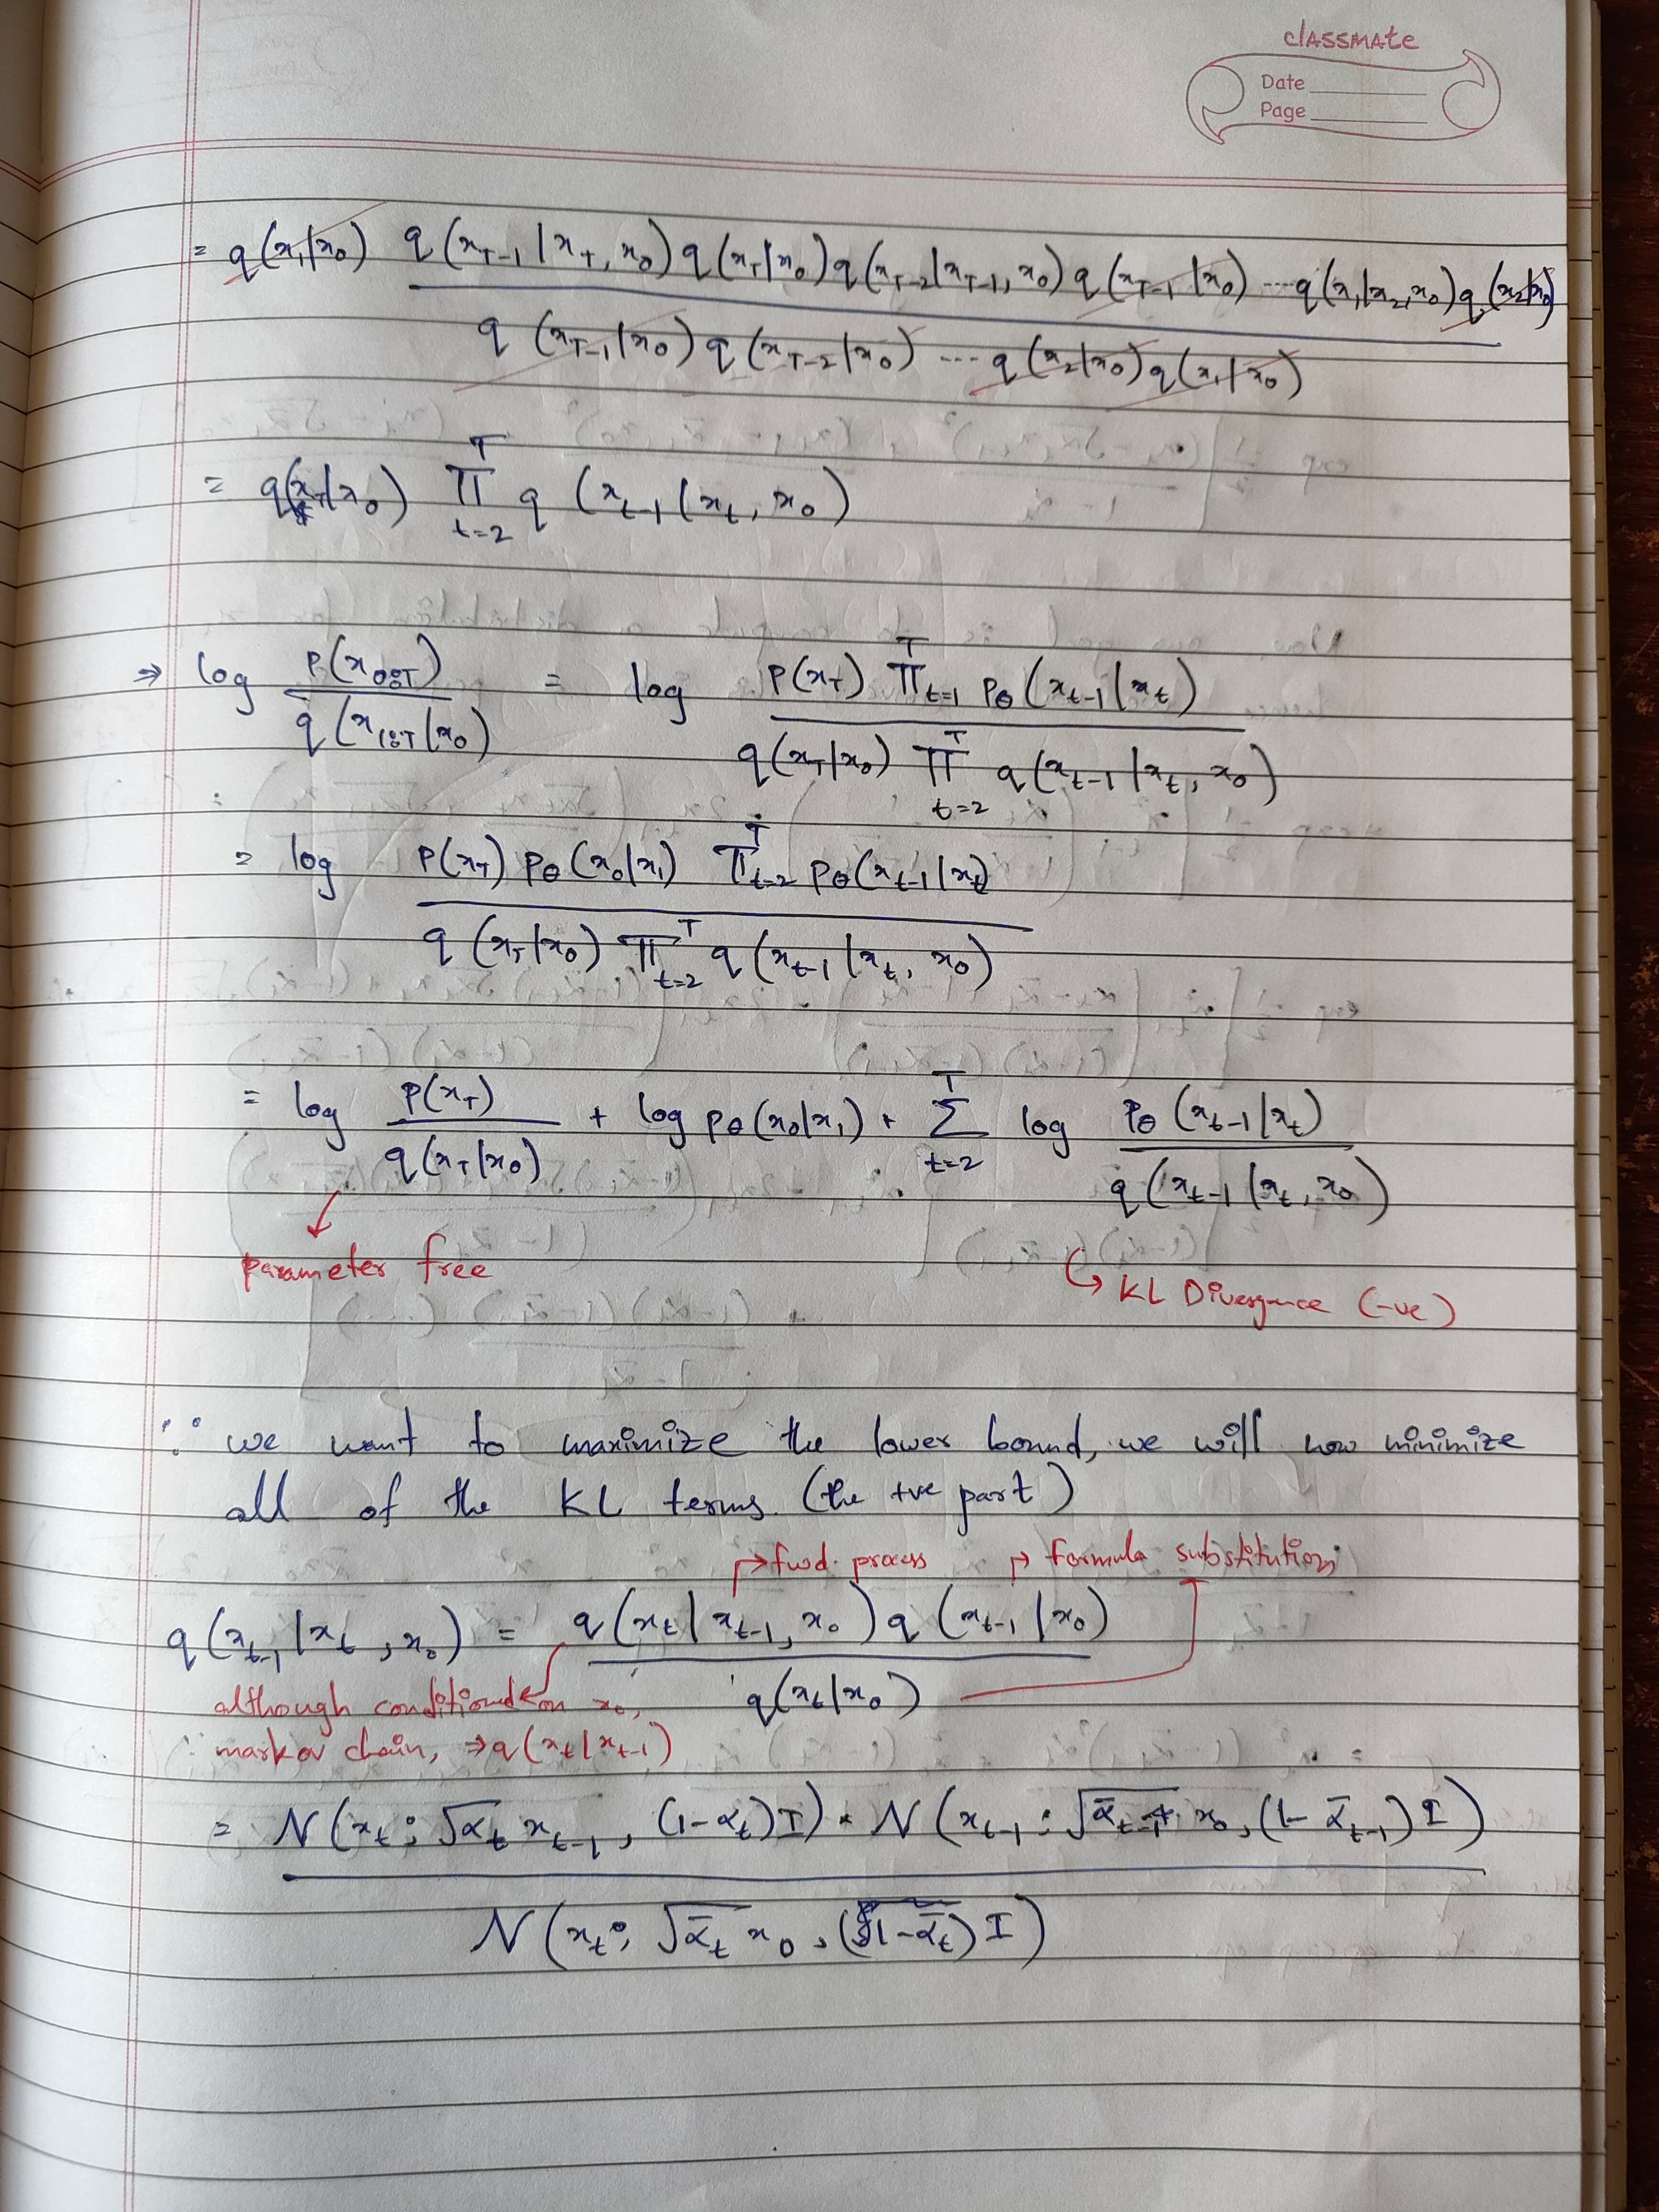 classmate
Date
Page
= q(x₁|x₀) q(x_{T-1}|x_T, x₀) q(x_T|x₀) q(x_{T-2}|x_{T-1}, x₀) q(x_{T-1}|x₀) ---- q(x₁|x₂, x₀) q(x₂|x₀)
q(x_{T-1}|x₀) q(x_{T-2}|x₀) ---- q(x₂|x₀) q(x₁|x₀)
= q(x_T|x₀) ∏_{t=2}^{T} q(x_{t-1}|x_t, x₀)
⇒ log p(x_{0:T}) / q(x_{1:T}|x₀) = log p(x_T) ∏_{t=1}^{T} p_θ(x_{t-1}|x_t) / q(x_T|x₀) ∏_{t=2}^{T} q(x_{t-1}|x_t, x₀)
= log p(x_T) p_θ(x₀|x₁) ∏_{t=2}^{T} p_θ(x_{t-1}|x_t) / q(x_T|x₀) ∏_{t=2}^{T} q(x_{t-1}|x_t, x₀)
= log p(x_T) / q(x_T|x₀) + log p_θ(x₀|x₁) + Σ_{t=2}^{T} log p_θ(x_{t-1}|x_t) / q(x_{t-1}|x_t, x₀)
parameter free
↳ KL Divergence (-ve)
∵ we want to maximize the lower bound, we will now minimize
all of the KL terms. (the +ve part)
↱ fwd. process ↱ formula substitution
q(x_{t-1}|x_t, x₀) = q(x_t|x_{t-1}, x₀) q(x_{t-1}|x₀) / q(x_t|x₀)
although conditioned on x₀,
∵ markov chain, ⇒ q(x_t|x_{t-1})
= N(x_t; √α_t x_{t-1}, (1-α_t)I) * N(x_{t-1}; √ᾱ_{t-1} x₀, (1-ᾱ_{t-1})I)
N(x_t; √ᾱ_t x₀, (1-ᾱ_t)I)